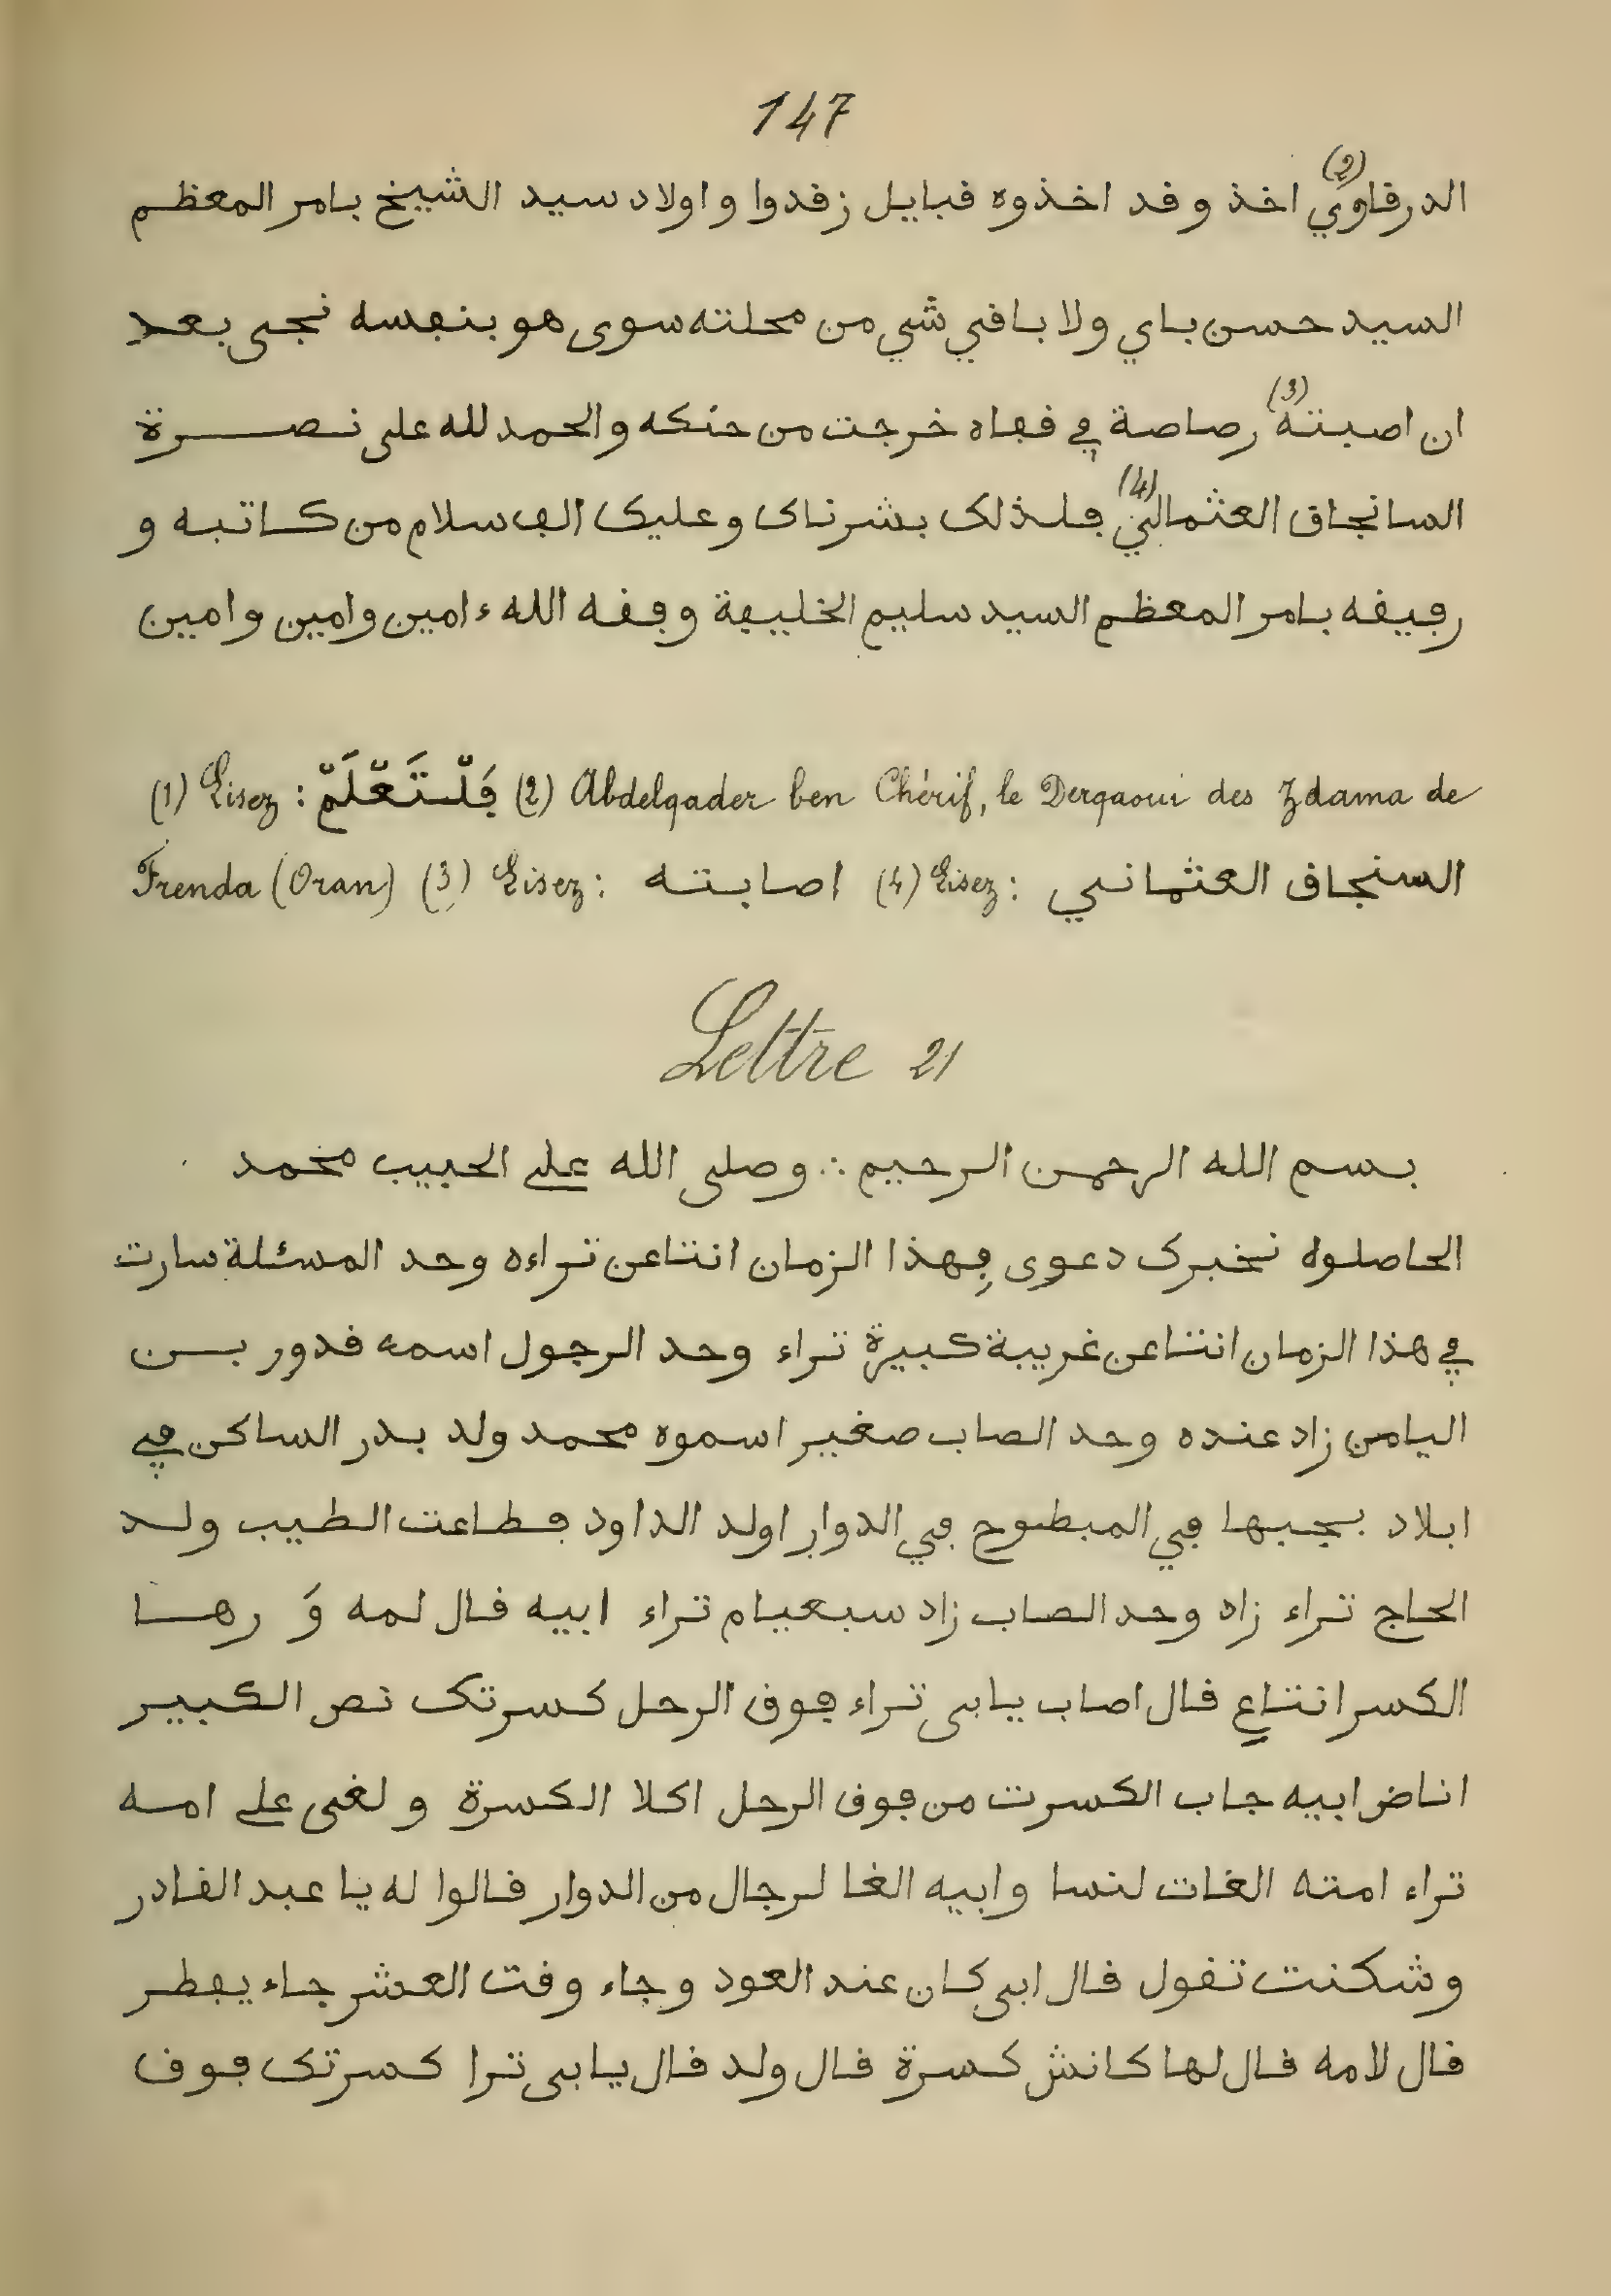 147
الدرقاوي (2) اخذ وقد اخذوه قبايل زقدوا و اولاد سيد الشيخ بامر المعظم
السيد حسن باي ولا باقي شي من محلته سوى هو بنفسه نجى بعد
ان اصبته (3) رصاصة في قفاه خرجت من حنكه و الحمد لله على نصرة
السانجاق العثمالي (4) فلذلك بشرناك و عليك الف سلام من كاتبه و
رفيقه بامر المعظم السيد سليم الخليفة وفقه الله ءامين وامين وامين
(1) Lisez : فَلْتَعْلَمْ (2) Abdelqader ben Chérif, le Derqaoui des Zdama de
Frenda (Oran) (3) Lisez : اصابته (4) Lisez : السنجاق العثماني
Lettre 21
بسم الله الرحمن الرحيم ∴ وصلى الله على الحبيب محمد
الحاصلوه نخبرك دعوى فِهذا الزمان انتاعن تراءه وحد المسئلة سارت
في هذا الزمان انتاعن غريبة كبيرة تراء وحد الرجول اسمه قدور بن
اليامن زاد عنده وحد الصاب صغير اسموه محمد ولد بدر الساكن في
ابلاد بجبها في المبطوح في الدوار اولد الداود فطاعت الطيب ولد
الحاج تراء زاد وحد الصاب زاد سبعيام تراء ابيه قال لمه وَ رها
الكسر انتاع قال اصاب يابى تراء فوق الرحل كسرتك نص الكبير
اناض ابيه جاب الكسرت من فوق الرحل اكلا الكسرة و لغى على امه
تراء امته الغات لنسا وابيه الغا لرجال من الدوار قالوا له يا عبد القادر
وشكنت تقول قال ابى كان عند العود وجاء وقت العشر جاء يفطر
قال لامه قال لها كانش كسرة قال ولد قال يابى ترا كسرتك فوق